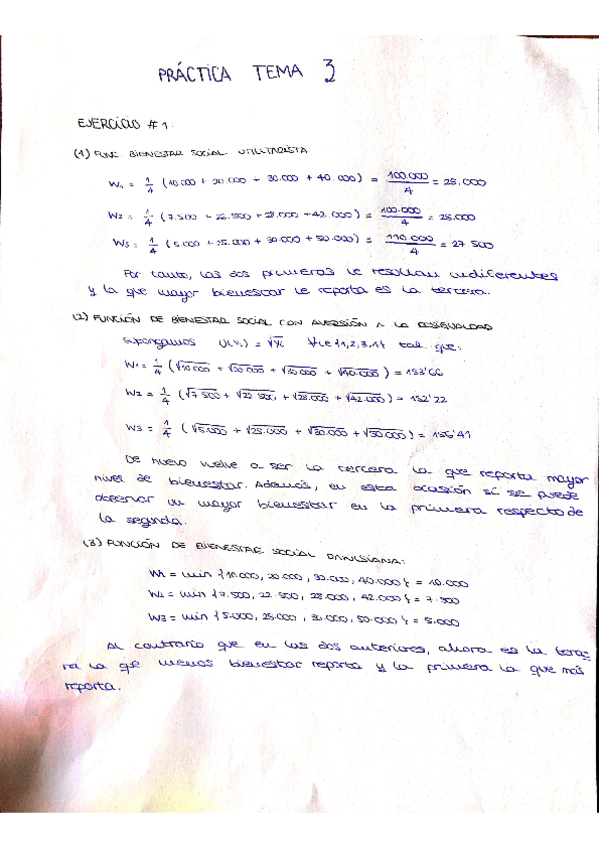 PRÁCTICA TEMA 3
EJERCICIO #1.
(1) FUNC BIENESTAR SOCIAL UTILITARISTA
W1 = 1/4 (10.000 + 20.000 + 30.000 + 40.000) = 100.000/4 = 25.000
W2 = 1/4 (7.500 + 22.500 + 28.000 + 42.000) = 100.000/4 = 25.000
W3 = 1/4 (5.000 + 25.000 + 30.000 + 50.000) = 110.000/4 = 27.500
Por tanto, las dos primeras le resultan indiferentes
y la que mayor bienestar le reporta es la tercera.
(2) FUNCIÓN DE BIENESTAR SOCIAL CON AVERSIÓN A LA DESIGUALDAD
Supongamos U(Yi) = √Yi ∀i∈{1,2,3,4} tal que:
W1 = 1/4 (√10.000 + √20.000 + √30.000 + √40.000) = 153'66
W2 = 1/4 (√7.500 + √22.500 + √28.000 + √42.000) = 152'22
W3 = 1/4 (√5.000 + √25.000 + √30.000 + √50.000) = 156'41
De nuevo vuelve a ser la tercera la que reporta mayor
nivel de bienestar. Además, en esta ocasión sí se puede
observar un mayor bienestar en la primera respecto de
la segunda.
(3) FUNCIÓN DE BIENESTAR SOCIAL RAWLSIANA:
W1 = min {10.000, 20.000, 30.000, 40.000} = 10.000
W2 = min {7.500, 22.500, 28.000, 42.000} = 7.500
W3 = min {5.000, 25.000, 30.000, 50.000} = 5.000
Al contrario que en las dos anteriores, ahora es la terce=
ra la que menos bienestar reporta y la primera la que más
reporta.